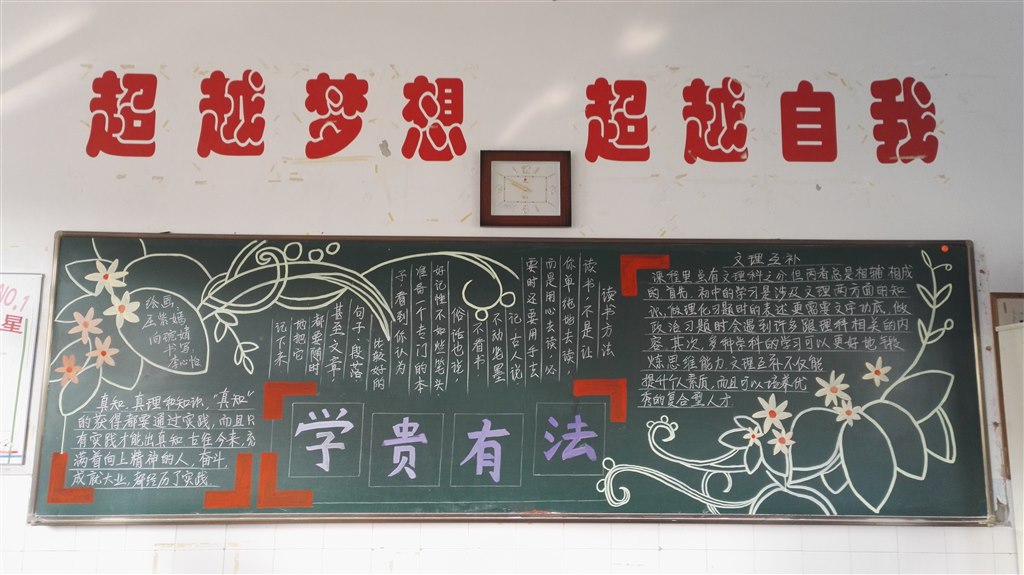 超越梦想 超越自我
NO.1
星
绘画
书写
李心怡
真知,真理和知识,"真知"
的获得都要通过实践,而且只
有实践才能出真知.古往今来,充
满着向上精神的人,奋斗,
成就大业,都经历了实践.
读书方法
读书,不是让
你单纯地去读,
而是用心去读,必
要时还要用手去
记古人说
不动笔墨
不看书
俗话也说,
好记性不如烂笔头
准备一个专门的本
子看到你认为
比较好的
句子 段落
甚至文章,
都要随时
的把它
记下来
学贵有法
文理互补
课程里总有文理科之分但两者总是相辅相成
的 首先 初中的学习是涉及文理两方面的知
识,做理化习题时的表述更需要文字功底,做
政治习题时会遇到许多跟理科相关的内
容 其次,多种学科的学习可以更好地锻
炼思维能力 文理互补不仅能
提升个人素质,而且可以培养优
秀的复合型人才